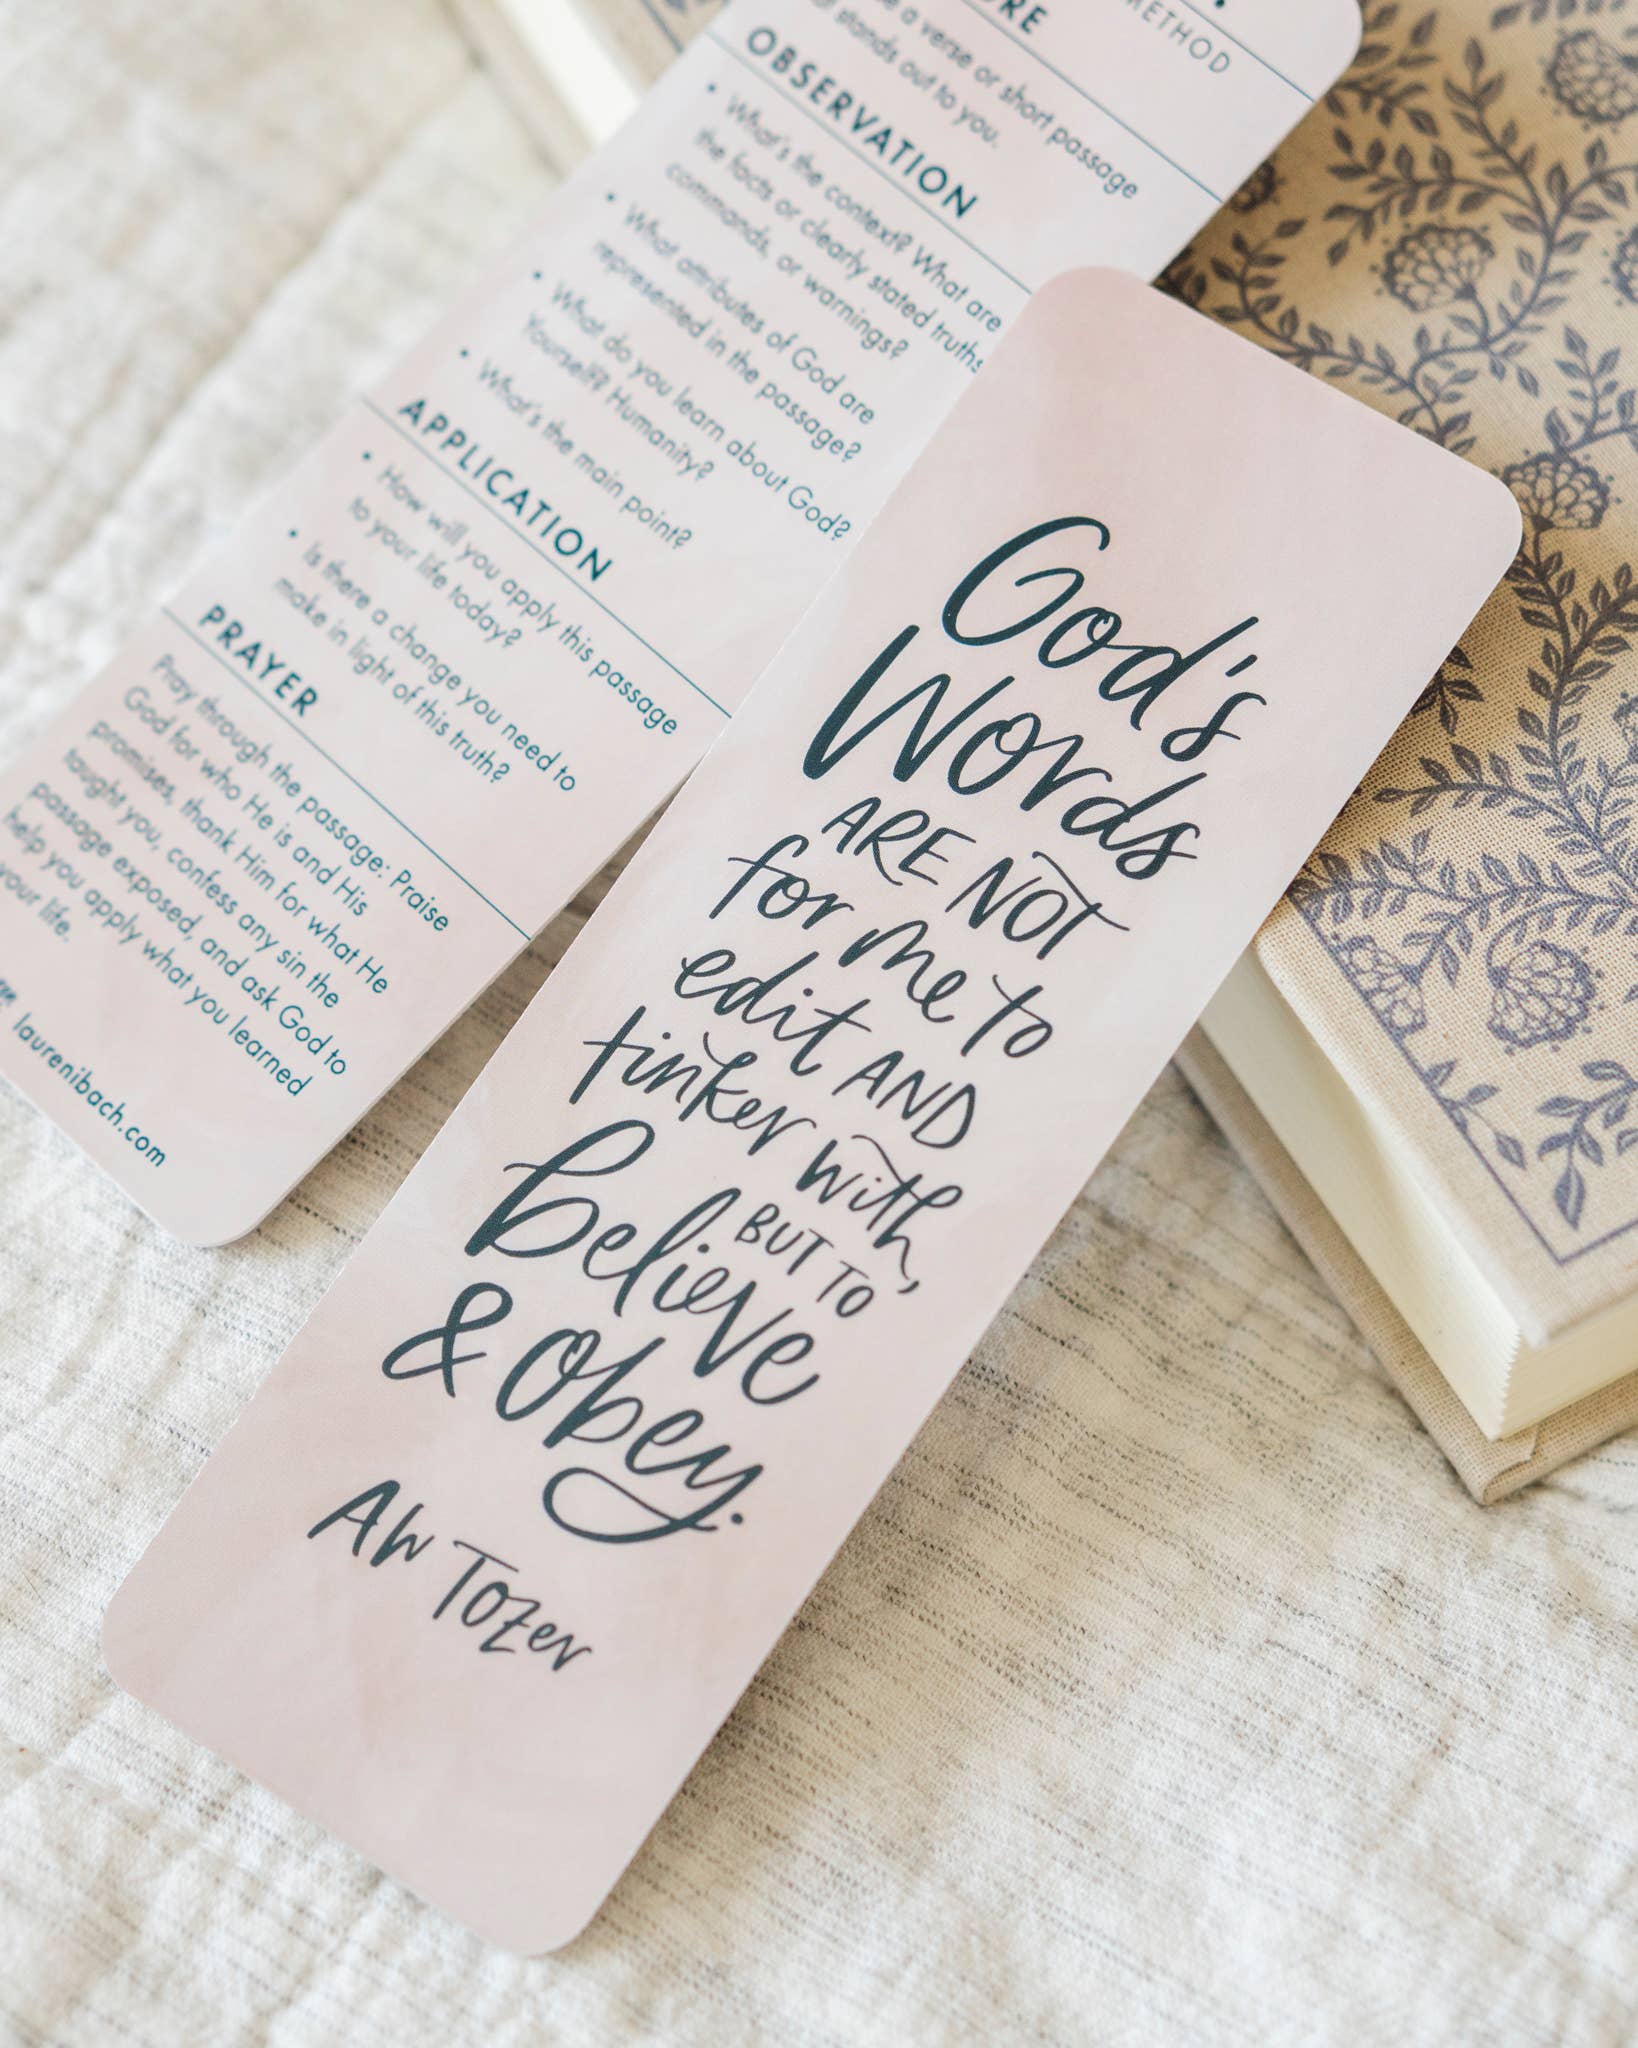 METHOD
a verse or short passage
stands out to you.
OBSERVATION
• What's the context? What are
the facts or clearly stated truths,
commands, or warnings?
• What attributes of God are
represented in the passage?
• What do you learn about God?
Yourself? Humanity?
• What's the main point?
APPLICATION
• How will you apply this passage
to your life today?
• Is there a change you need to
make in light of this truth?
PRAYER
Pray through the passage: Praise
God for who He is and His
promises, thank Him for what He
taught you, confess any sin the
passage exposed, and ask God to
help you apply what you learned
your life.
laurenibach.com
God's
Words
ARE NOT
for me to
edit AND
tinker with,
BUT TO
believe
& obey.
AW Tozer